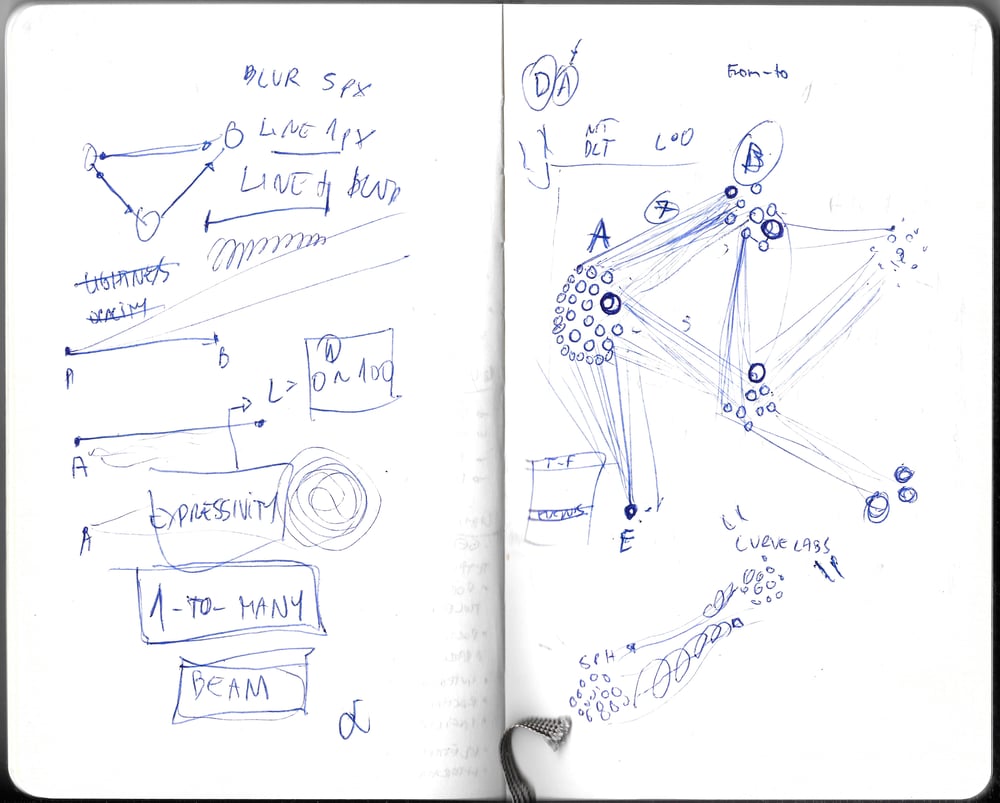 BLUR 5PX
LINE 1PX
LINE
B
LIGHTNESS
OPACITY
A
B
L >
0 ~ 100
A
EXPRESSIVITY
A
1-TO-MANY
BEAM
α
D A
From-to
NT
DLT
LOD
B
7
A
5
T-F
EVENTS
E
CURVE LABS
SPH